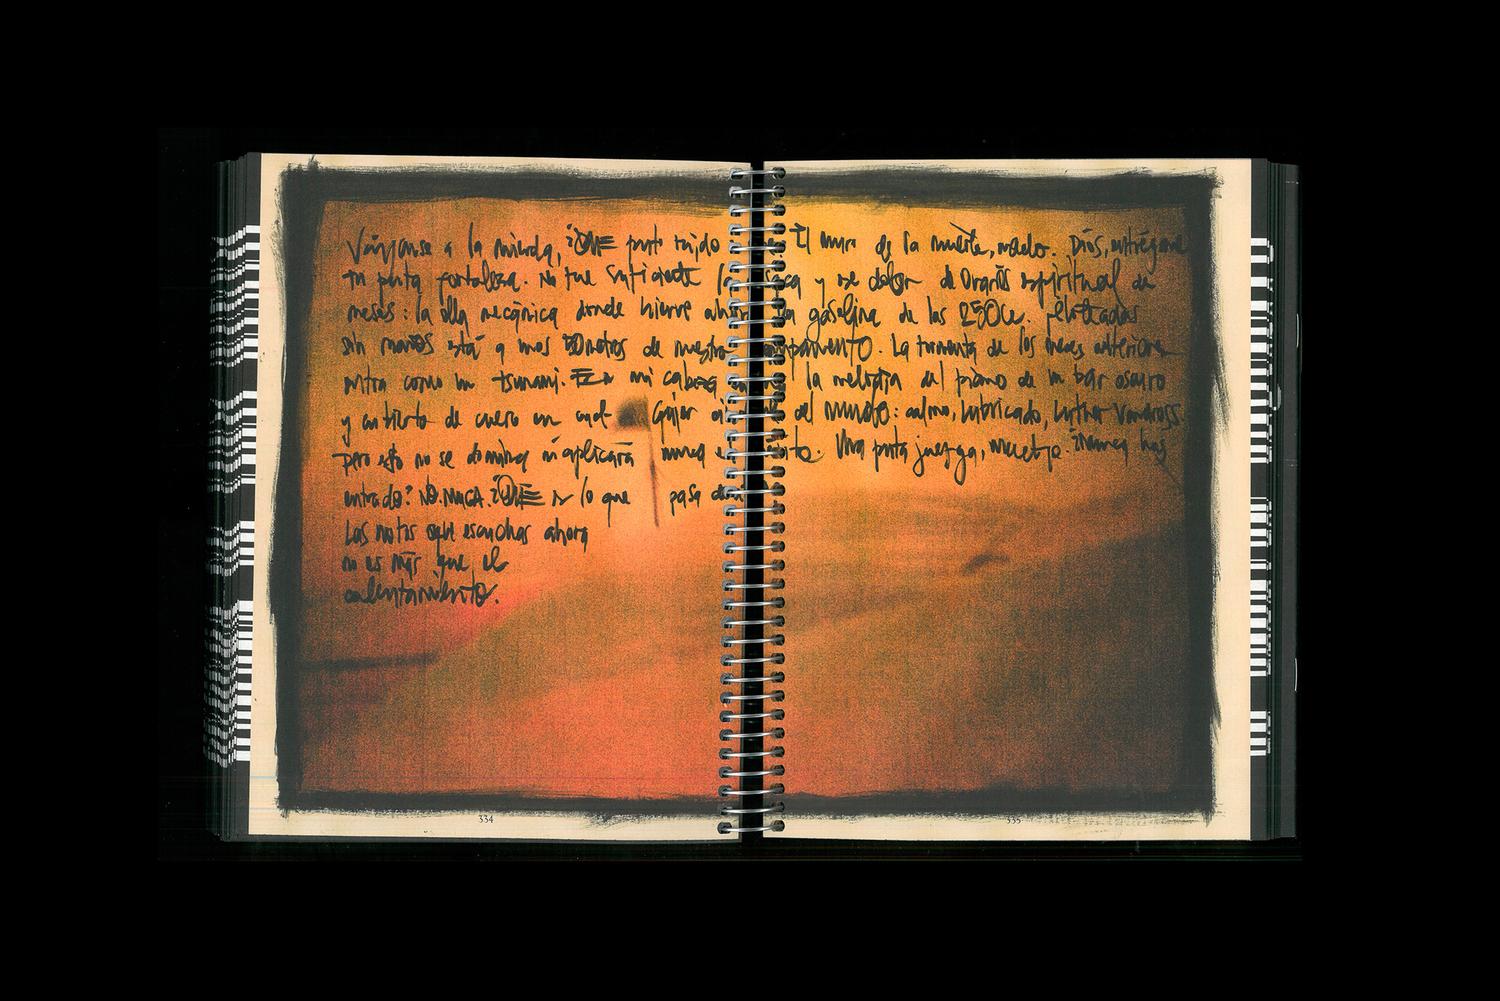 Váyanse a la mierda, ¿QUE puto ruido es? El muro de la muerte, miedo. Dios, entrégame
tu puta fortaleza. No fue suficiente la y ese dolor de espiritual de
meses: la olla mecánica donde hierve ahora la gasolina de las 250cc. piloteadas
sin manos está a unos 50 metros de nuestro campamento. La tormenta de los meses anteriores
entra como un tsunami. En mi cabeza la melodía del piano de un bar oscuro
y cubierto de cuero en del mundo: calmo, lubricado, Luther Vandross
pero esto no se domina ni aplicará nunca Una puta juerga, muerte. ¿Nunca has
entrado? NO. NUNCA. ¿QUE es lo que pasa
Las notas que escuchas ahora
no es más que el
calentamiento.
334
335